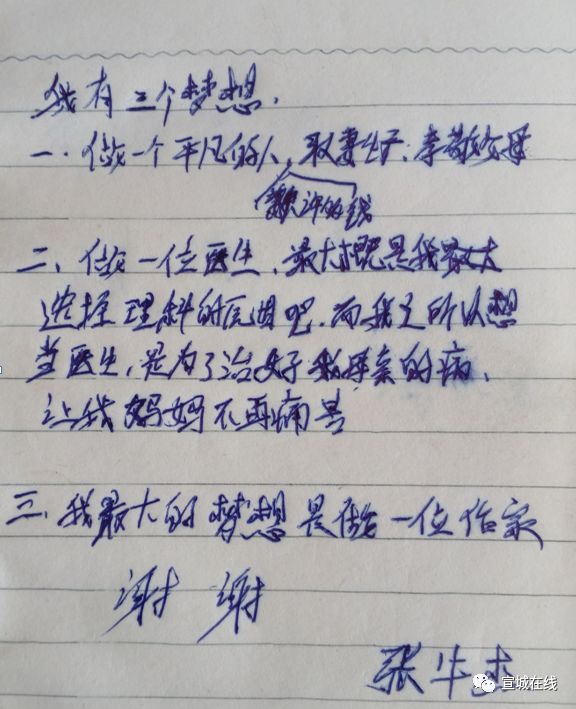 我有三个梦想.
一.做一个平凡的人,取妻生子,孝敬父母
的钱
二、做一位医生,最大概是我最大
选择理科的原因吧.而我之所以想
当医生,是为了治好我母亲的病、
让我妈妈不再痛苦
三.我最大的梦想是做一位作家
谢谢
张
宣城在线